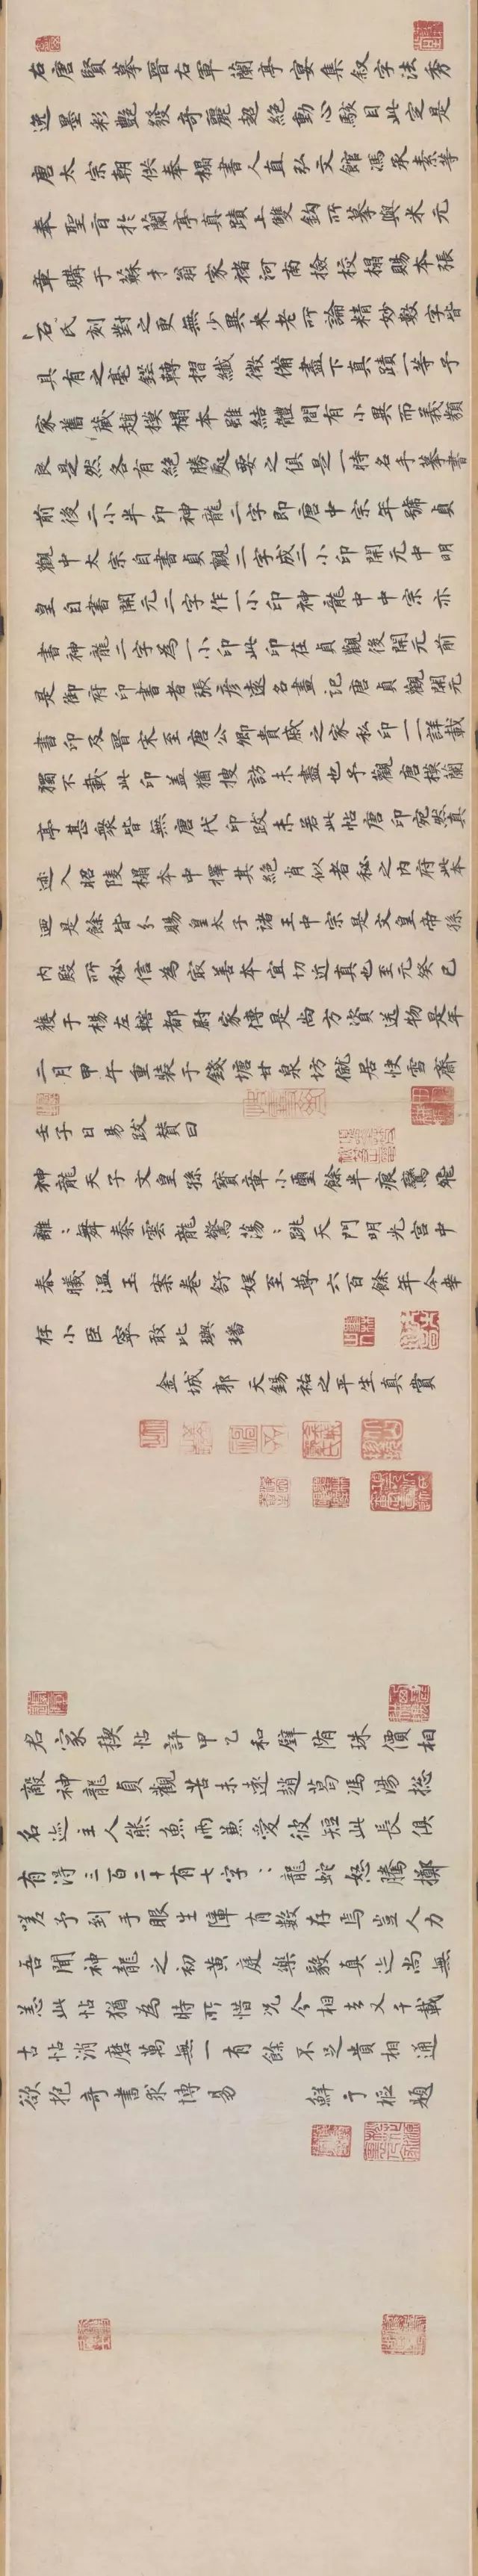 右唐賢摹晉右軍蘭亭宴集敘字法秀
逸墨彩艷發奇麗超絕動心駭目此定是
唐太宗朝供奉搨書人直弘文館馮承素等
奉聖旨於蘭亭真蹟上雙鉤所摹與米元
章購于蘇才翁家褚河南撿挍搨賜本張
石氏刻對之更無少異米老所論精妙數字皆
具有之毫鋩轉摺纖微備盡下真蹟一等予
家舊藏趙模搨本雖結體間有小異而義類
良是然各有絕勝處要之俱是一時名手摹書
前後二小半印神龍二字即唐中宗年號貞
觀中太宗自書貞觀二字成二小印開元中明
皇自書開元二字作一小印神龍中中宗亦
書神龍二字為一小印此印在貞觀後開元前
是御府印書者張彥遠名畫記唐貞觀開元
書印及晉宋至唐公卿貴戚之家私印一一詳載
獨不載此印蓋猶搜訪未盡也予觀唐模蘭
亭甚眾皆無唐代印跋未若此帖唐印宛然真
迹入昭陵搨本中擇其絕肖似者秘之內府此本
迺是餘皆分賜皇太子諸王中宗是文皇帝孫
內殿所秘信為冣善本宜切近真也至元癸巳
獲于楊左轄都尉家傳是尚方資送物是年
二月甲午重裝于錢塘甘泉坊僦居快雪齋
壬子日易跋贊曰
神龍天子文皇孫寶章小璽餘半痕鸞飛
離〻舞秦雲龍驚蕩〻跳天門明光宮中
春曦溫玉案卷舒娛至尊六百餘年今幸
存小臣寧敢比璵璠
金城郭天錫祐之平生真賞
君家禊帖評甲乙和璧隋珠價相
敵神龍貞觀苦未遠趙葛馮湯總
名迹主人熊魚兩兼愛彼短此長俱
有得三百二十有七字〻龍蛇怒騰擲
嗟予到手眼生障有數存焉豈人力
吾聞神龍之初黃庭樂毅真迹尚無
恙此帖猶為時所惜況今相去又千載
古帖消磨萬無一有餘不足貴相通
欲抱奇書求博易 鮮于樞題